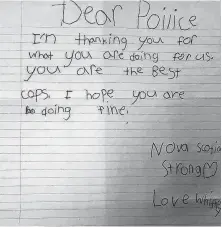 Dear Poiiice
I'm thanking you for
what you are doing for us.
you are the best
cops. I hope you are
doing fine.
Nova Scotia
Strong♡
Love